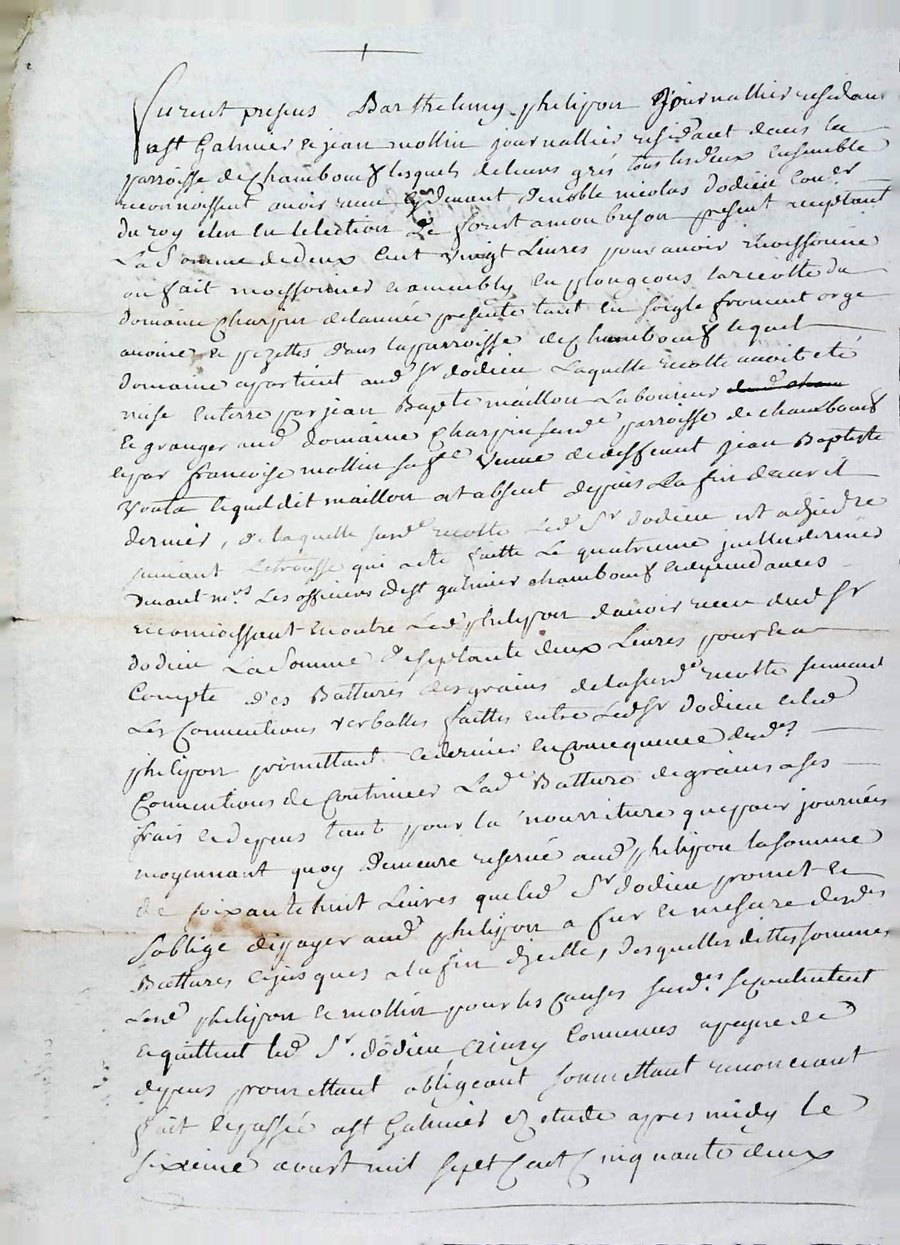 furent presens Barthelemy philipon journallier residant
a st Galmier et jean mollin journallier residant dans la
parroisse de chamboeuf lesquels de leurs grés tous les deux ensemble
reconnoissent avoir reçu cy devant de noble nicolas dodieu coner
du roy élu en lélection de forest a monbrison present acceptant
La Somme de deux cent vingt Livres pour avoir moissonné
ou fait moissonner et assembly en plongeons la récolte du
domaine Charpin de lannée presente tant en soigle froment orge
avoine et pezettes dans la parroisse de chamboeuf lequel
domaine apartient aud Sr dodieu Laquelle recolte avoit eté
mise en terre par jean Bapte maillon Laboureur
et granger aud domaine Charpin surde parroisse de chamboeuf
et par francoise mollin sa fe veuve de deffunt jean Baptiste
vouta lequel dit maillon est absent depuis La fin davril
dernier, de laquelle surde recolte Led Sr dodieu est adjudre
suivant Letrousse qui a été faitte Le quatrieme juillet dernier
devant mrs Les officiers de st galmier chamboeuf et dependances
reconnoissant en outre Led philipon davoir reçu dud Sr
dodieu La Somme de septante deux Livres pour et a
Compte des Battures des grains de la surde recolte suivant
Les Conventions verballes faittes entre Led Sr dodieu et led
philipon promettant ce dernier en consequence desdes
Conventions de Continuer Lade Batture de grains a ses
frais et depens tant pour la nourriture que pour journées
moyennant quoy demeure reservé aud philipon la somme
de soixante huit Livres que led Sr dodieu promet et
soblige de payer aud philipon a fur et mesure desdes
Battures et jusques a la fin dicelles, desquelles dittes sommes
Lesd philipon et mollin pour les causes surdes se contentent
et quittent led Sr. dodieu Ainsy Convenus a peyne de
depens promettant obligeant soumettant renonceant
fait et passé a st Galmier etude apres midy Le
sixieme aoust mil sept Cent Cinquante deux